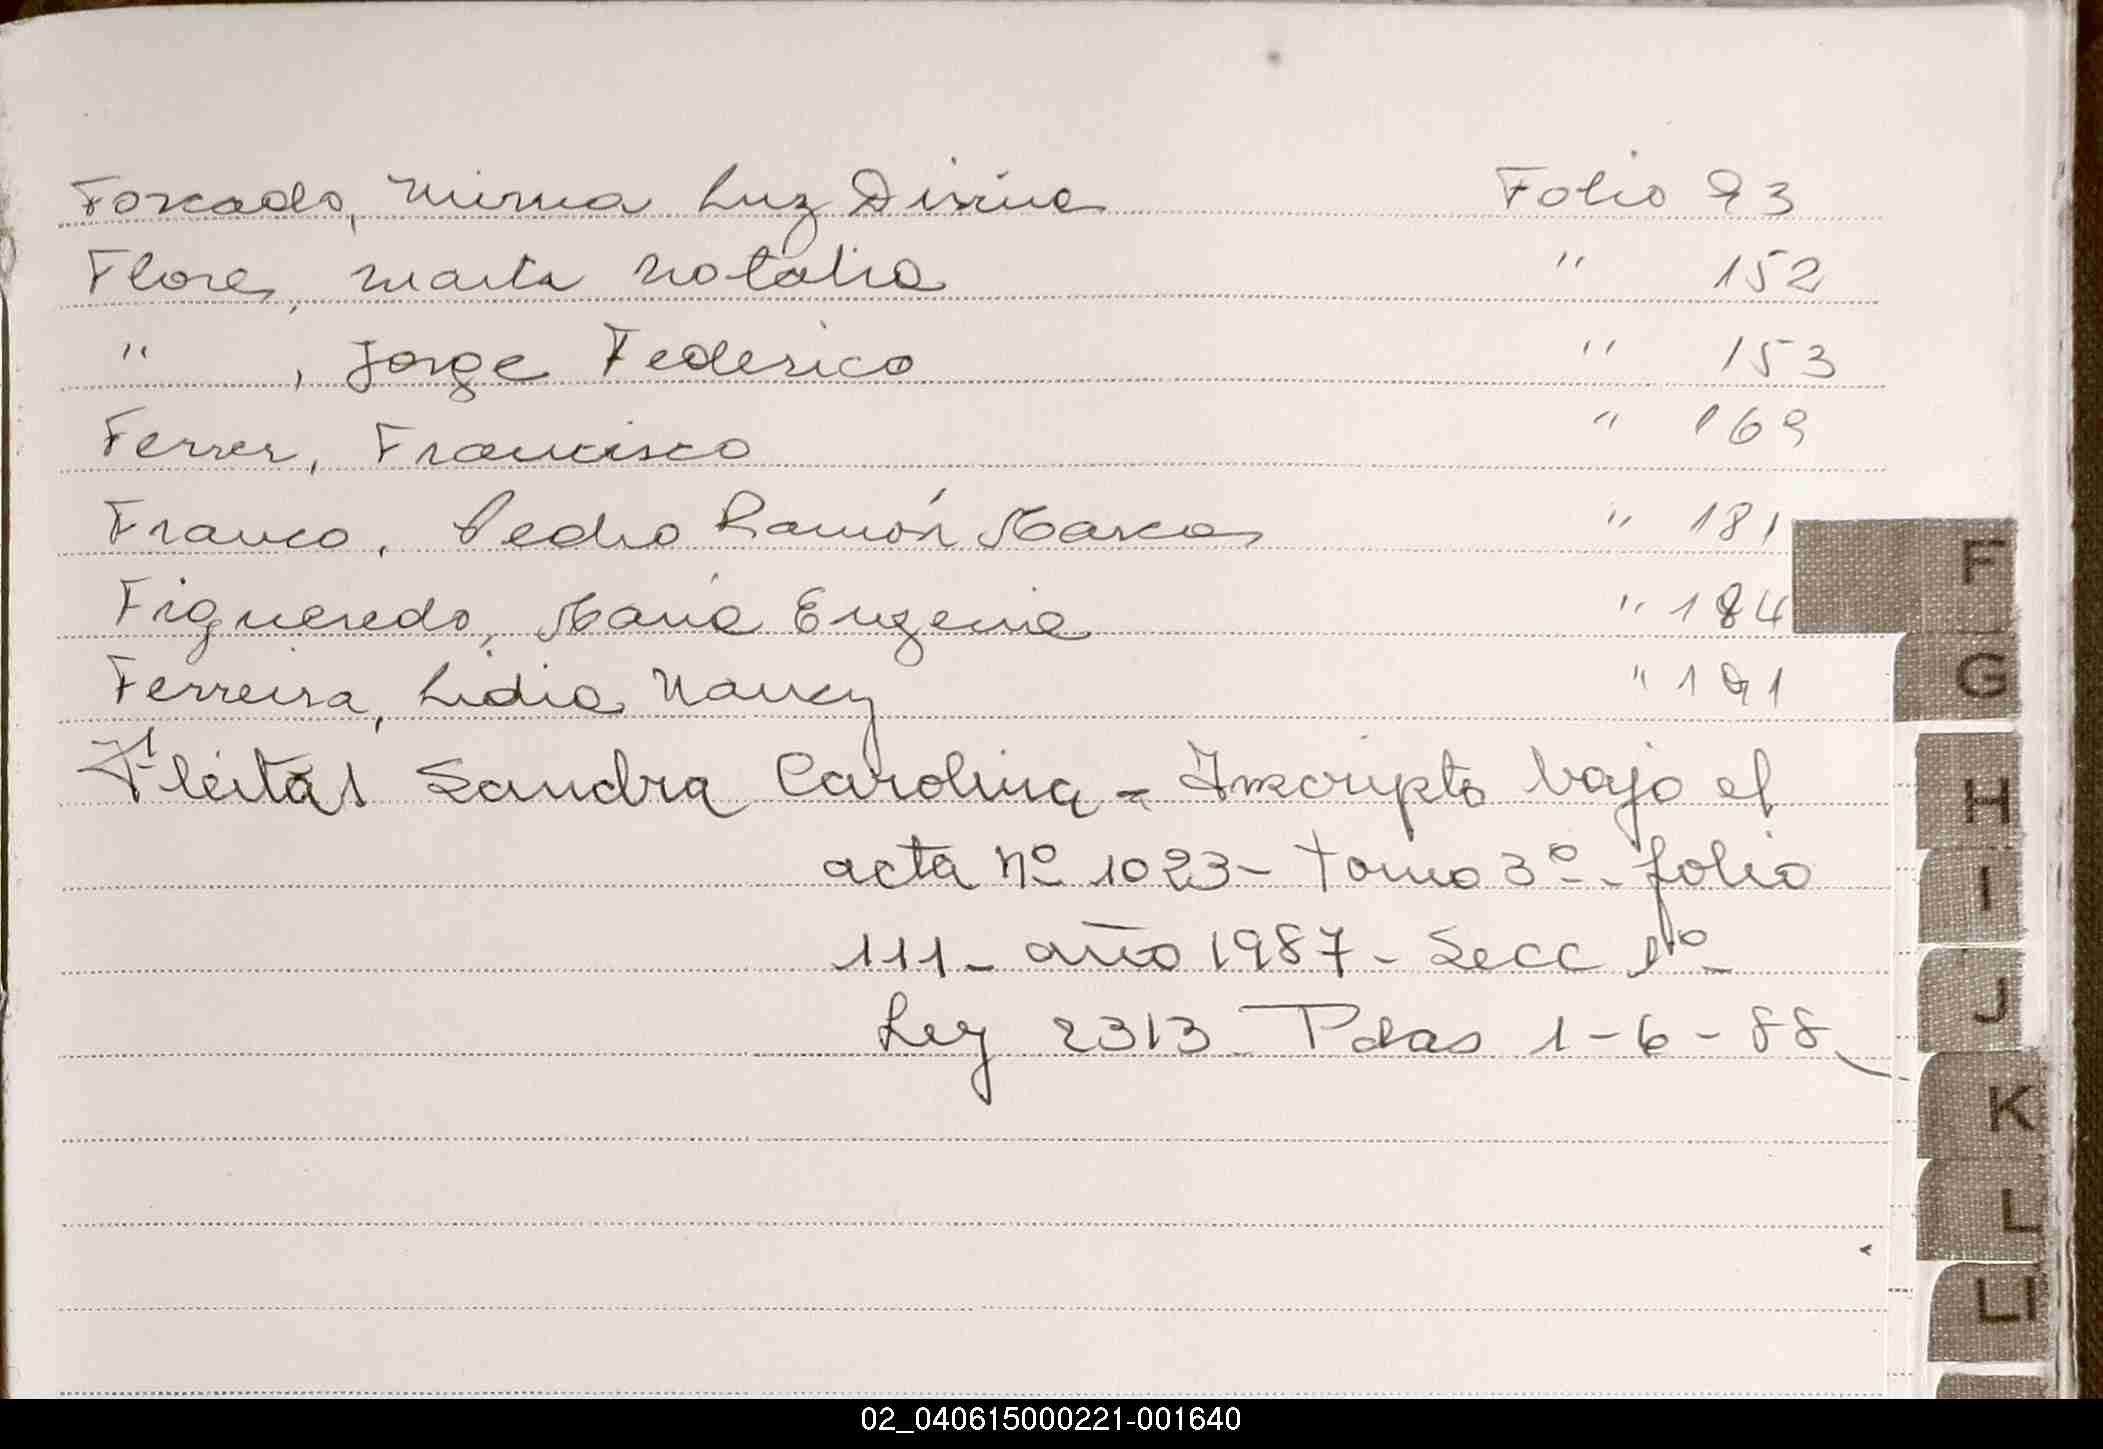 Forcado, Mirna Luz Divina Folio 93
Flores, Marta Natalia " 152
" , Jorge Federico " 153
Ferrer, Francisco " 169
Franco, Pedro Ramón Marcos " 181
Figueredo, María Eugenia " 184
Ferreira, Lidia Nancy " 191
Fleitas Sandra Carolina - Inscripto bajo el
acta nº 1023 - tomo 3º - folio
111 - año 1987 - Secc 1º -
Ley 2313 Pdas 1-6-88
F
G
H
I
J
K
L
Ll
02_040615000221-001640